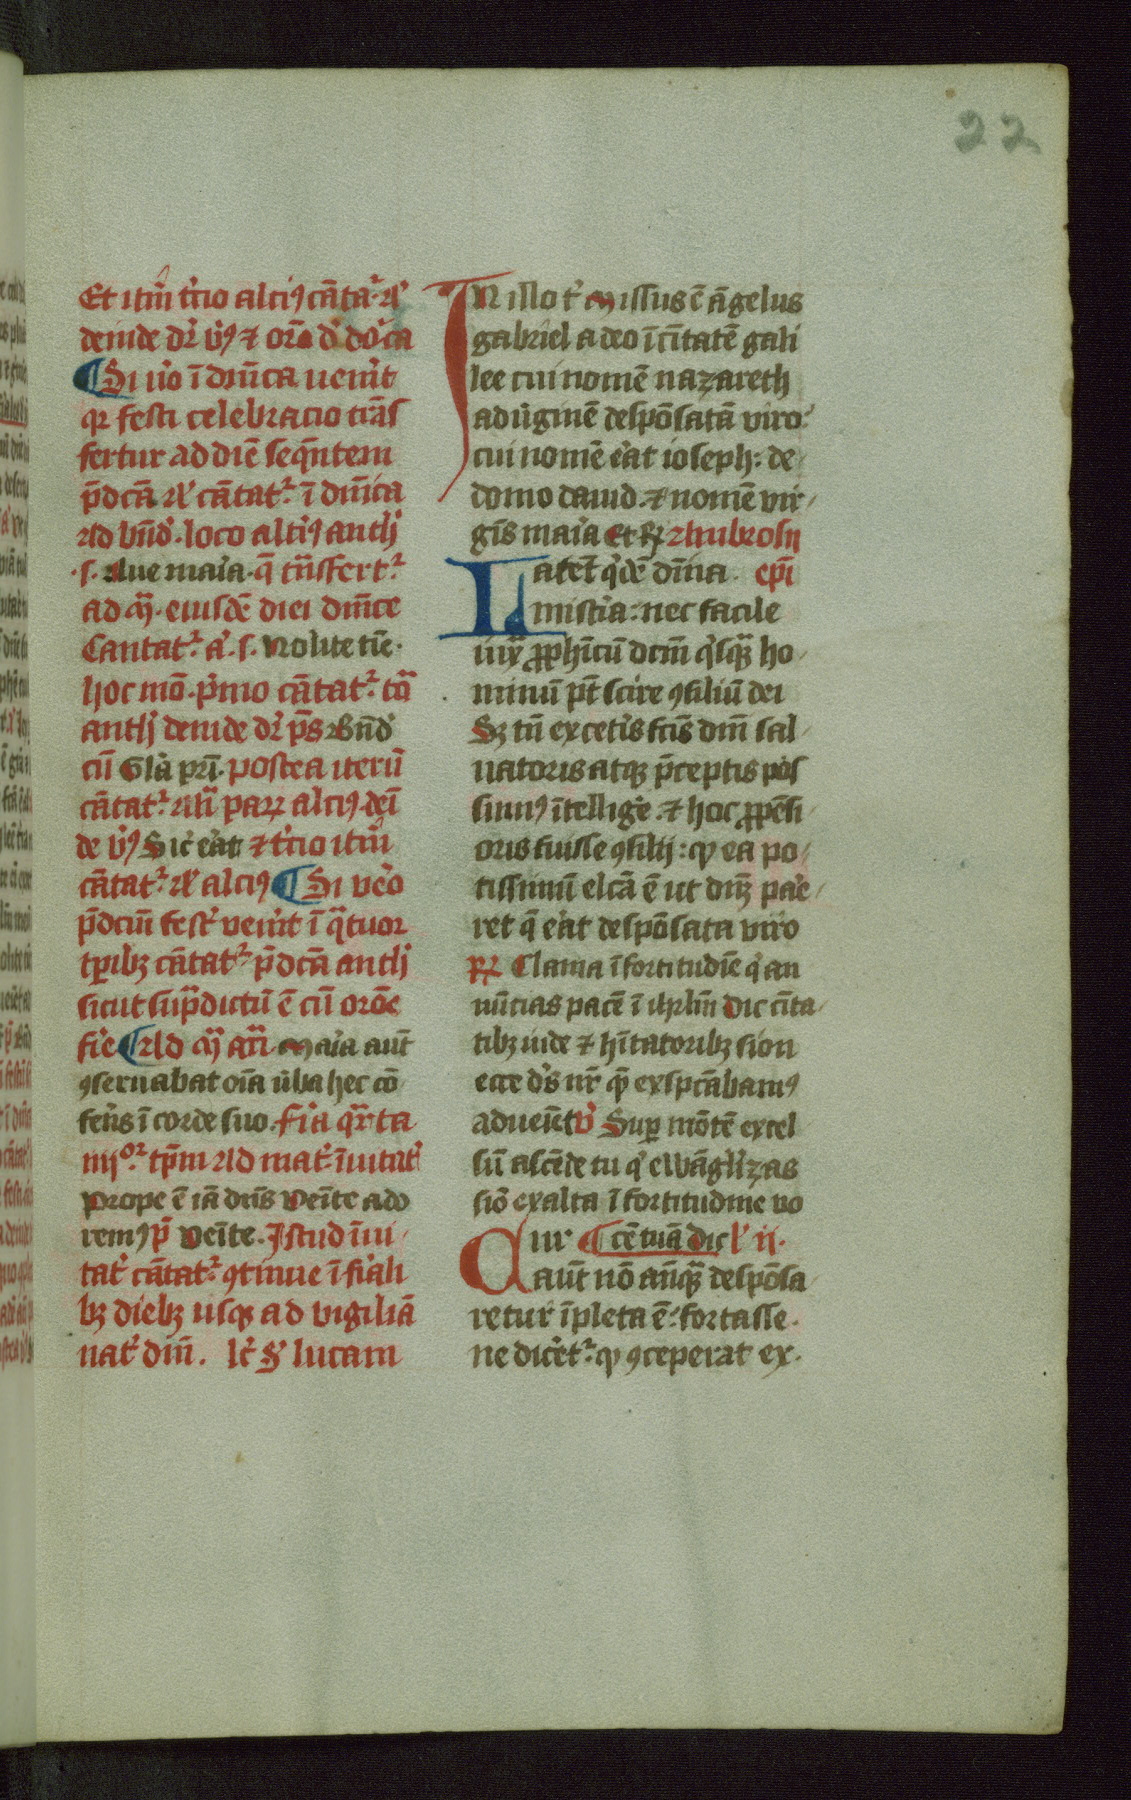 22
Et itm̄ t'cio alci9 cāta.r a'
deinde dr̄ v'9 ⁊ orō d' do'ca
¶ Si u'o ī dn̄ica uen'it
qr festi celebracio trās
fertur ad diē seq̄ntem
p̄dcā a' cātat.r ī dn̄ica
Ad bn̄d'. loco alti9 anth
.s. Aue maīa. q̄ tn̄sfert.r
ad m̄. eiusdē diei dn̄ice
Cantat.r a'. s. Nolite tīe.
hoc mō. p'mo cātat.r tōa
anth deinde dr̄ ps̄ Bn̄d'
cū Glā pri. postea iterū
cātat.r alti9 deī
de v'9 Sic' eāt ⁊ t'cio itm̄
cātat.r a' alci9 ¶ Si vēo
p̄dcm̄ fest' ven'it ī q̄tuor
tpib3 cātat.r p̄dcā anth
sicut sup̄dictū ē cū orōe
fīe ¶ Ad m̄ an̄ Maīa aūt
9seruabat oīa ūba hec cō
fen̄s ī corde suo. fīa q̄rta
iiij.or tp̄m Ad mat' īuitat'
Prope ē iā dn̄s Veīte ado
rem9 p̄ Veīte. Istud īui
tat' cātat.r 9tinue ī fīali
b3 dieb3 usq3 ad vigiliā
nat' dn̄i. lc' s' lucam
IN illo t' Missus ē āgelus
gabriel a deo ī cīitatē gali
lee cui nomē nazareth
ad ūginē despōsatā viro
cui nomē eāt ioseph: de
domo dauid. ⁊ nomē vir
gīs maīa Et R Ambrosij
Latēt q'dē dīna epī
mistīa: nec facile
iux̄ pphīcū dcm̄ q'sq̄3 ho
minū pt̄ scire 9siliū dei
S3 tn̄ ex cetīs fcīs dn̄i sal
uatoris atq3 p̄ceptis pos
sum9 ītellige'. ⁊ hoc ppēsi
oris fuisse 9silij: q' ea po
tissimū elcā ē ut dn̄3 pāe
ret q̄ eāt despōsata viro
R Clama ī fortitudīe q' an
nūcias pacē ī ihrlm̄ Dic cīita
tib3 iude ⁊ hītatorib3 sion
ecce d's nr̄ q̄ exspctābam9
aduen̄et V' Sup mōtē excel
sū ascēde tu q' ewāgl'izas
siō exalta ī fortitudine vo
Cur ¶ cē tuā Dic l' ij.
aūt nō an̄q̄ despōsa
retur īpleta ē: fortasse.
ne dicēt.r q' 9ceperat ex.